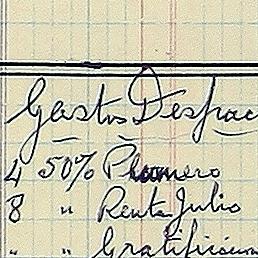 Gastos Despac
4 50% Plumero
8 " Renta Julio
" " Gratificacion